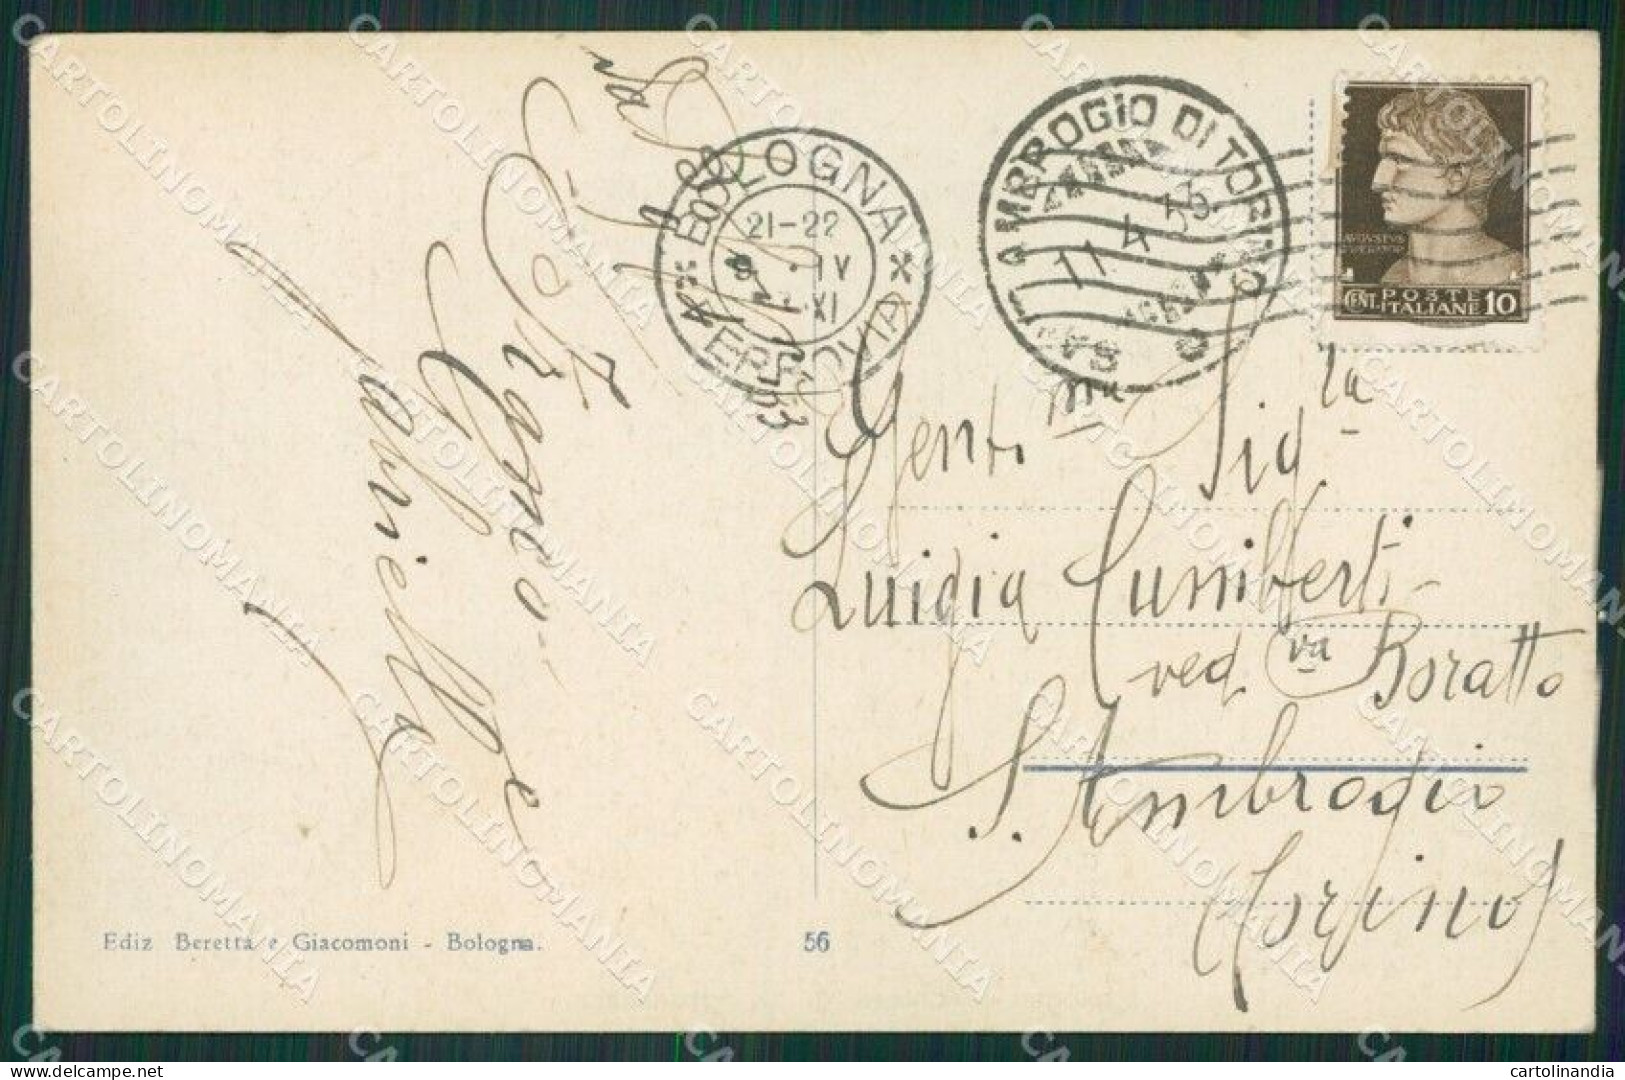 BOLOGNA
FERROVIA
21-22
IV
XI
S. AMBROGIO DI TORINO
11 4 33
AVGVSTVS
IMPERATOR
POSTE
CENT. ITALIANE 10
Gent.ma Sig.ra
Luigia Cuniberti
ved.va Boratto
S. Ambrogio
(Torino)
Franco
Gabriella
Ediz Beretta e Giacomoni - Bologna.
56
CARTOLINOMANIA
cartolinandia